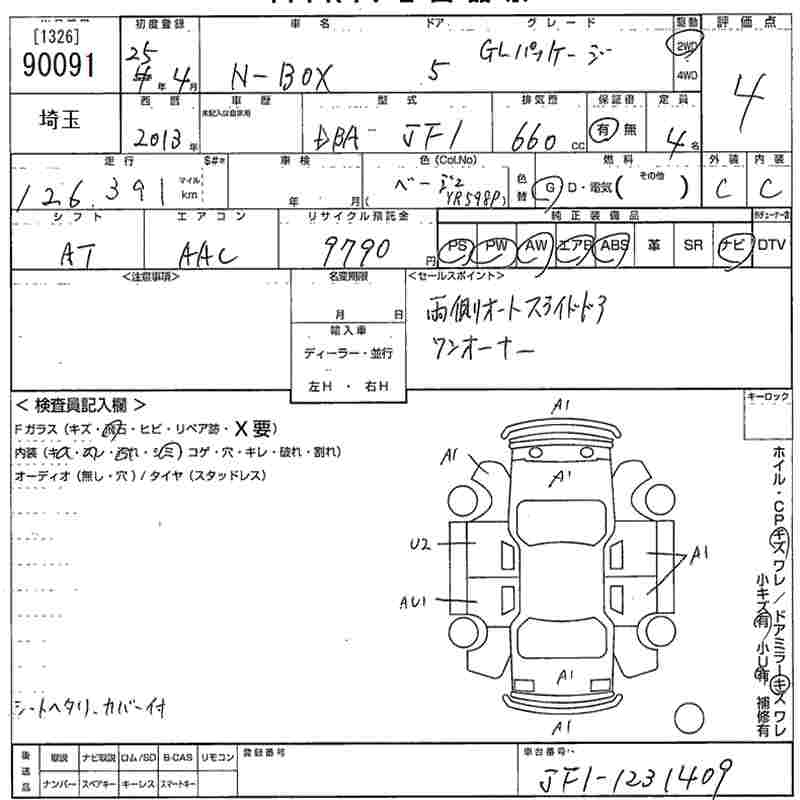 [1326]
90091
埼玉
初度登録 車名 ドア グレード 駆動 評価点
25年 4月 N-BOX 5 GLパッケージ 2WD 4WD 4
西暦 車歴 型式 排気量 保証書 定員
未記入は自家用
2013年 DBA- JF1 660cc 有 無 4名
走行 $#= 車検 色(Col.No) 色替 燃料 外装 内装
126,391 マイル km 年 月 ( ベージュ YR598P) G D・電気( その他 ) C C
シフト エアコン リサイクル預託金 純正装備品
AT AAC 9790円 PS PW AW エアB ABS 革 SR ナビ DTV
<注意事項> 名変期限 <セールスポイント>
月 日 両側オートスライドドア
輸入車 ワンオーナー
ディーラー・並行
左H ・ 右H
< 検査員記入欄 > キーロック
Fガラス(キズ・飛石・ヒビ・リペア跡・X要)
内装(キズ・ヨレ・汚れ・シミ) コゲ・穴・キレ・破れ・割れ)
オーディオ(無し・穴)/タイヤ(スタッドレス)
A1
A1 A1
U2 A1
AU1
A1
A1
ホイル・CPキズ ワレ/ドアミラーキズ ワレ
小キズ有/小U有 補修有
シートヘタリ、カバー付
後送品 取説 ナビ取説 ロム/SD B-CAS リモコン 登録番号 車台番号
ナンバー スペアキー キーレス スマートキー JF1-1231409